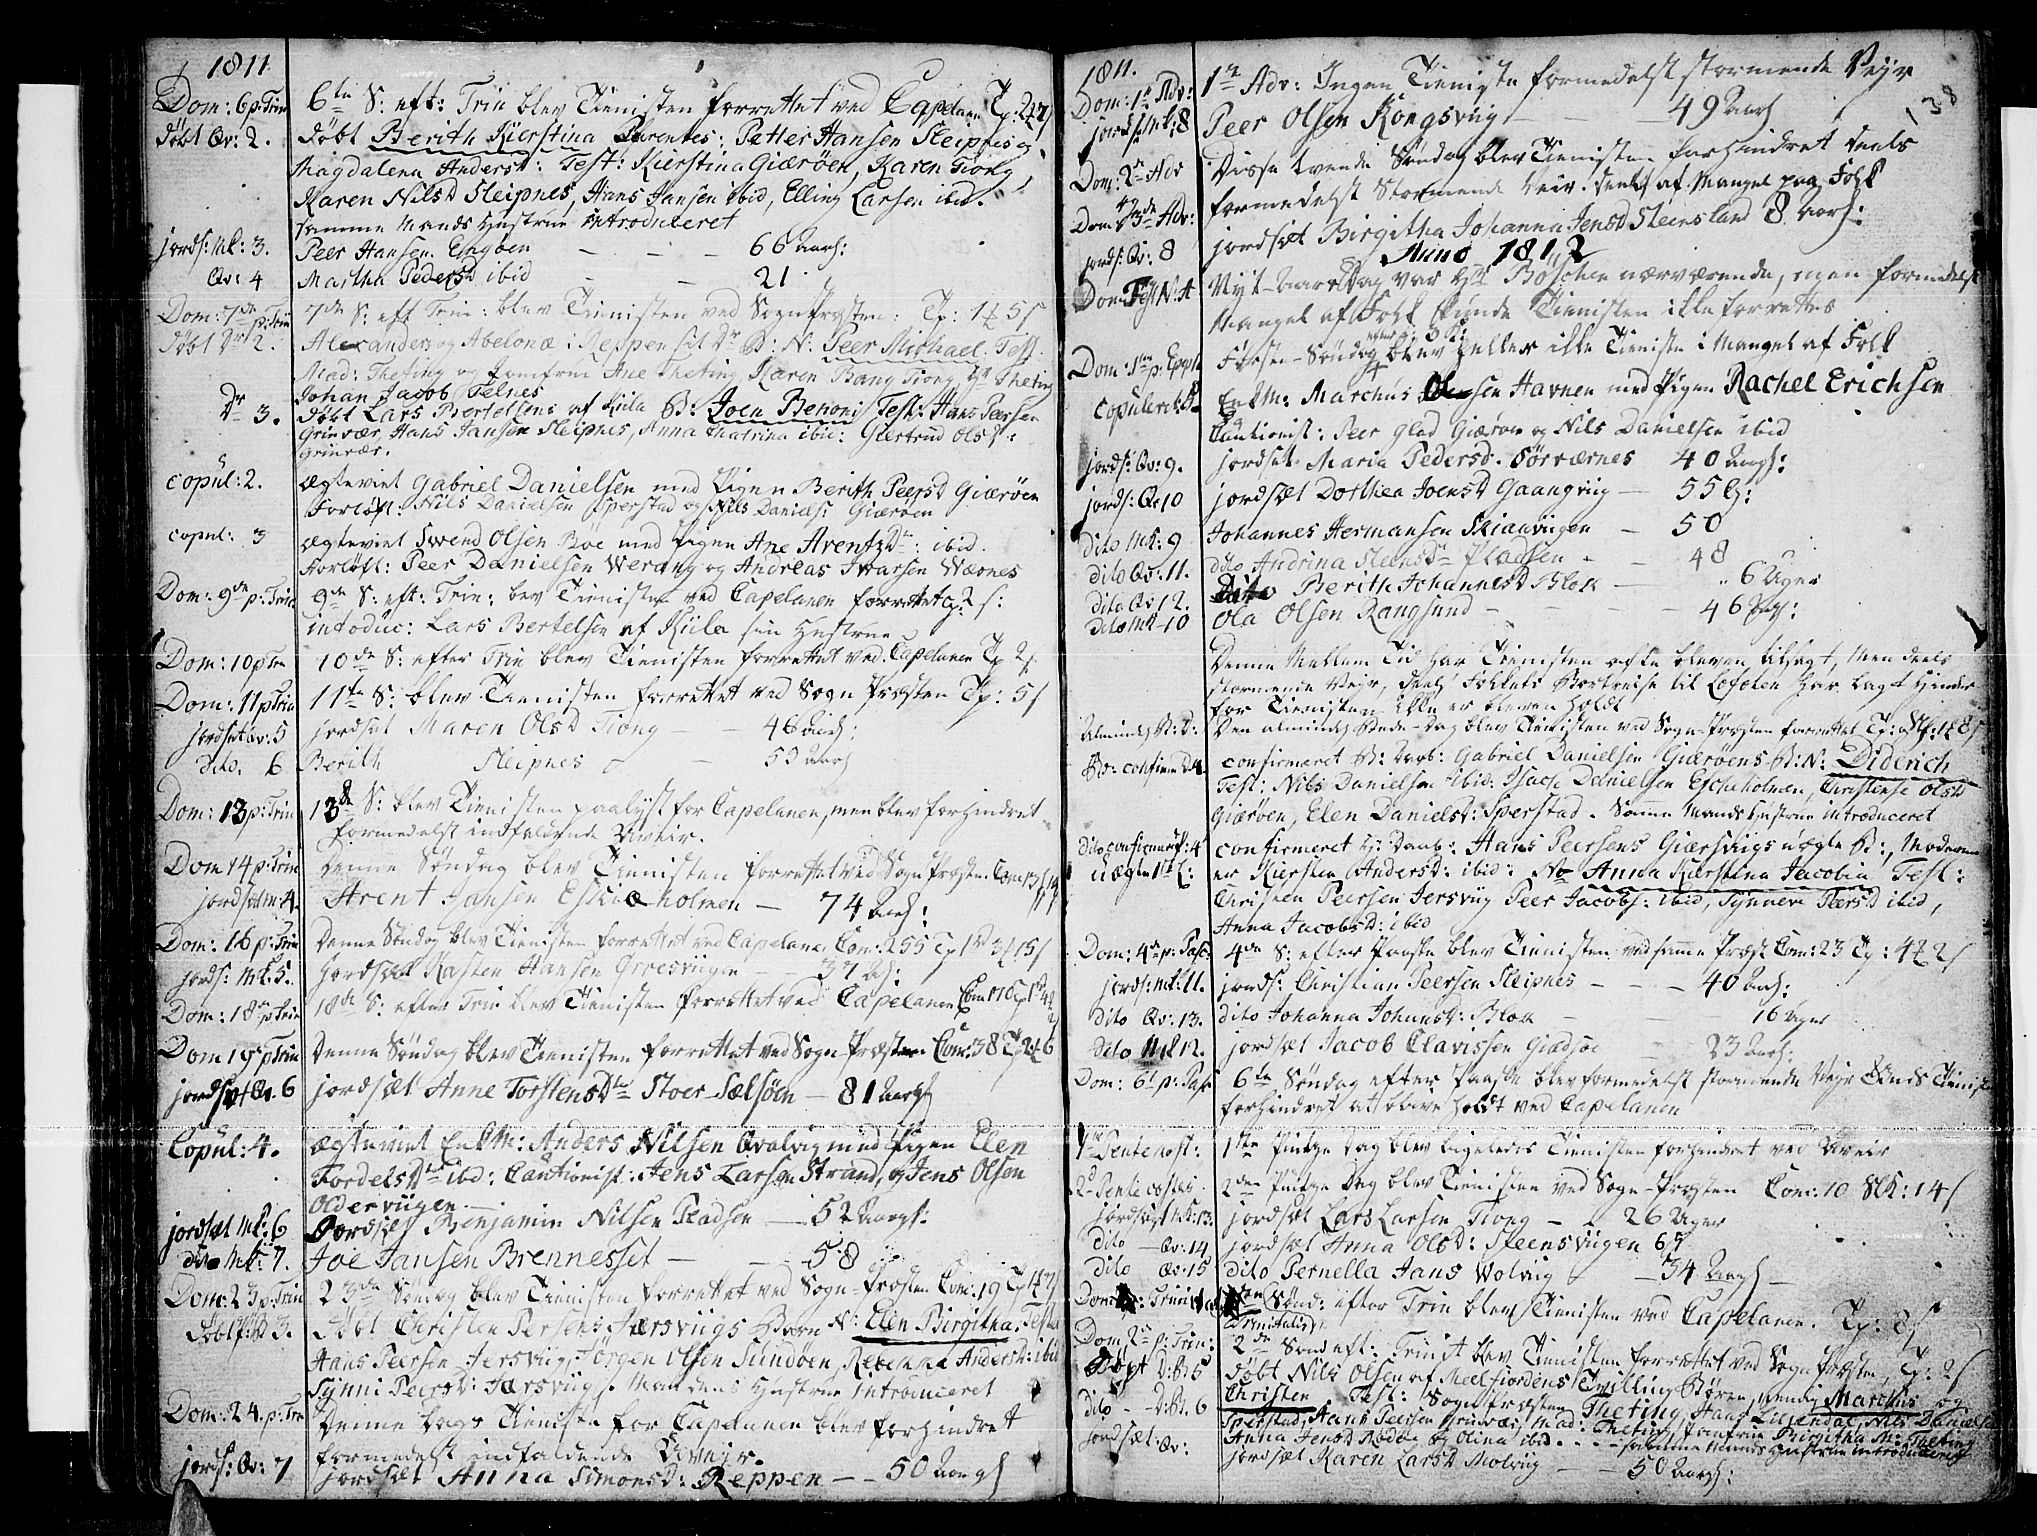 1811
Dom: 6 p: Trin 6te S: eft: Trin blev Tienisten forrettet ved Capelanen Tp:
döbt Qv: 2. döbt Berith Kierstina Parentes: Petter Hansen Sleipnis og
Magdalena Andersd: Test: Kierstina Giæröen, Karen Tiong
Karen Nilsd Sleipnes, Hans Jansen ibid, Elling Larsen ibid.
samme Mands Hustrue introduceret
jords: Mk: 3. Peer Hansen Engben - - - 66 Aar:
Qv: 4 Martha Pedersd ibid - - 21
Dom: 7de p: Trin 7de S: eft Trin: blev Tienisten ved Sogn Præsten: Tp: 1 5 s
döbt Dr 2. Alexanders og Abelonæ i Reppen sit Dr B: N: Peer Michael Test
Mad: Theting og Jomfrue Ane Theting Karen Bang Tiong, Hr Theting
Johan Jacob Felnes
Dr 3. döbt Lars Bertelsens af Kiila B: Joen Benoni Test: Hans Peersen
Grinvær, Hans Jansen Sleipnes, Anna Chatrina ibid: Giertrud Olsd:
Grinvær.
copul: 2. ægteviet Gabriel Danielsen med Pigen Berith Peersd Giæröen
Forlöft: Nils Danielsen Sperstad og Nils Daniels: Giæröen
copul: 3 ægteviet Svend Olsen Böe med Pigen Ane Arentzdtr: ibid.
Forlöft: Peer Danielsen Werang og Andreas Ivarsen Værnes
Dom: 9de p: Trin 9de S: eft: Trin: blev Tienisten ved Capelanen forrettet Tp: 2 s:
introduc: Lars Bertelsen af Kiila sin Hustrue
Dom: 10 p Trin 10de S: efter Trin blev Tienisten forrettet ved Capelanen Tp 2 s
Dom: 11 p Trin 11te S: blev Tienisten forrettet ved Sogn Præsten Tp: 5 s
jordset Qv: 5 jordset Maren Olsd Tiong - 46 Aar:
dito. 6 Berith Sleipnes - 53 Aar
Dom: 13 p: Trin 13de S: blev Tienisten paalyst for Capelanen, men blev forhindret
formedelst indfaldende Uveir.
Dom 14 p: Trin Denne Söndag blev Tienisten forrettet ved Sogn Præsten Com 13
jordset m: 4. Arent Jansen Eskieholmen - 74 Aar:
Dom: 16 p: Trin Denne Söndag blev Tienisten forrettet ved Capelanen Com: 255 Tp 1 3 15 s
jords: Mk: 5. jordset Kasten Hansen Örresviigen - - 37 Aar:
Dom: 18 p Trin 18de S: efter Trin blev Tienisten forrettet ved Capelanen
Dom 19 p Trin Denne Söndag blev Tienisten forrettet ved Sogn Præsten Com: 38
jordset Qv. 6 jordsæt Anne Torstensdtr Stoer-Sælsöen - 81 Aar
Copul: 4. ægteviet Enkm: Anders Nilsen Qvalvig med Pigen Elen
Fordelsdtr ibd: Cautionist: Jens Larsen Strand, og Jens Olsen
Oldervüigen
jordsæt Mk: 6 Jordset Benjamin Nilsen Pladsen - 52 Aar:
dito Mk: 7. Joe Jansen Brennesset - - 58
Dom: 23 p: Trin 23de Söndag blev Tienisten forrettet ved Sogn-Præsten Com: 19
döbt 3. döbt Christen Persens Jærsviigs Barn N: Elen Birgitha, Test
Hans Peersen Jersviig, Jörgen Olsen Sundöen, Rebekka Andersd: ibid
Synni Peersd: Jærsviig. Mandens Hustrue Introduceret
Dom: 24. p: Trin Denne Dags Tieniste for Capelanen blev forhindret
formedelst indfaldende Uveyr.
jords: Qv: 7 jordsæt Anna Simonsd: Reppen - - 50 Aar
1811. 138
Dom: 1te Adv: 1te Adv: Ingen Tieniste formedelst stormende Veyr
jords: Mk: 8 Peer Olsen Kongsviig - - 49 Aar
Dom: 2de Adv Disse tvende Söndag blev Tienisten forhindret deels
Dom: 3de Adv: formedelst Stormende Veir. deels af Mangel paa Folk
jords: Qv: 8 jordsæt Birgitha Johanna Jensd Steensland 8 Aar:
Anno 1812
Dom Fest N: A Nyt-Aars Dag var Hr Böschen nærværende, men formedelst
Mangel af Folk kunde Tienisten ikke forrettes
Dom: 1te p: Epyph Förste-Söndag blev heller ikke Tieniste i Mangel af Folk
copuleret Enkm: Marchus Olsen Havnen med Pigen Rachel Erichsen
Cautionist: Peer Glad Giæröen og Nils Danielsen ibid
jords: Qv: 9. jordset Maria Pedersd. Sörværnes 40 Aar:
jords: Qv 10 jordsæt Dorthea Joensd Gaangviig - 55
dito Mk: 9 Johannes Hermansen Skiaaviigen - 50
dito Qv: 11. dito Andrina Steensdtr Pladsen - 48
dito Qv 12. Dito Berith Johannesd Blok - 6 Uger
dito Mk 10 Ola Olsen Rangsund - - - 46 Aar:
Denne Mellem Tid har Tienisten ofte bleven tilsagt, Men deels
stormende Veir, deels Folkets Bortreise til Lofoten har lagt Hinder
for Tienisten ikke er bleven holdt
Alminds B: D: Den alminds Bede-Dag blev Tienisten ved Sogn-Præsten forrettet
confirm D. 4. confirmeret H: Daab: Gabriel Danielsen Giæröens B: N: Diderich
Test: Nils Danielsen ibid. Isach Danielsen Escheholmen, Christense Olsd
Giæröen, Elen Danielsd: Sperstad. Samme Mands Hustrue introduceret
dito confirmered P: 4 confirmeret H: Daab: Hans Peersens Giærsviigs uægte B:, Moderen
uægte 1st: er Kiersten Andersd: ibid: No Anna Kierstina Jacobia Test:
Christen Peersen Jersviig Peer Jacobs: ibid, Synneve Peersd ibid,
Anna Jacobsd: ibid
Dom: 4de p: Pasc: 4de S: efter Paaske blev Tienisten ved samme Præst Com: 23 Tp: 4 2 s
jords: Mk: 11. jords: Christian Peersen Sleipnes - - - 40 Aar:
dito Qv: 13. dito Johanna Johansd: Blok - - 16 Uger
dito Mk 12. jordsæt Jacob Clavissen Giædsöe - 23 Aar:
Dom: 6t p: Pas: 6te Söndag efter Paaske blev formedelst stormende Veyr Guds Tieniste
forhindret at blive holdt ved Capelanen
1te Pentecost: 1ste Pintze Dag blev ligeledes Tienisten forhindret ved Uveir
2d Pentecostes 2den Pintze Dag blev Tienisten ved Sogn-Præsten Com: 10 Slk: 14 s
jordsæt Mk: 13. jordsæt Lars Larsen Tiong - 26 Uger
dito - Qv: 14 jordsæt Anna Olsd: Steensviigen 67
dito Qv: 15 dito Pernella Jans Wolviig - 34 Aar
Dom: Trinitat Sönd: efter Trin blev Tienisten ved Capelanen. Tp: 8 s
Trinitatis
Dom 2 p: Trin: 2de Sönd eft: Trinit blev Tienisten forrettet ved Sogn Præsten, Tp: 2 s
Döbt D: B: 5 döbt Nils Olsen af Meelfiordens Tvilling Bören, nemlig Marchus og
dito - D: B. 6 Christen Test: Sogn Præsten Theting, Hans Liliendal, Nils Danielsen
Sperstad, Hans Peersen Grindvær, Mad: Theting, Jomfrue Birgitha M: Theting
Anna Jensd Rödöe og Olina ibid. - - samme Mands Hustrue introduceret
jordsæt: Qv: jordsæt Karen Larsd Molviig - 50 Aar: